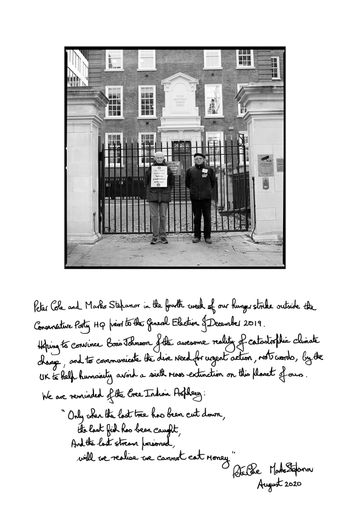 Peter Cole and Marko Stepanov in the fourth week of our hunger strike outside the
Conservative Party HQ prior to the General Election of December 2019.
Hoping to convince Boris Johnson of the awesome reality of catastrophic climate
change, and to communicate the dire need for urgent action, not words, by the
UK to help humanity avoid a sixth mass extinction on this planet of ours.
We are reminded of the Cree Indian Prophecy:
"Only when the last tree has been cut down,
the last fish has been caught,
And the last stream poisoned,
will we realise we cannot eat money"
Peter Cole Marko Stepanov
August 2020